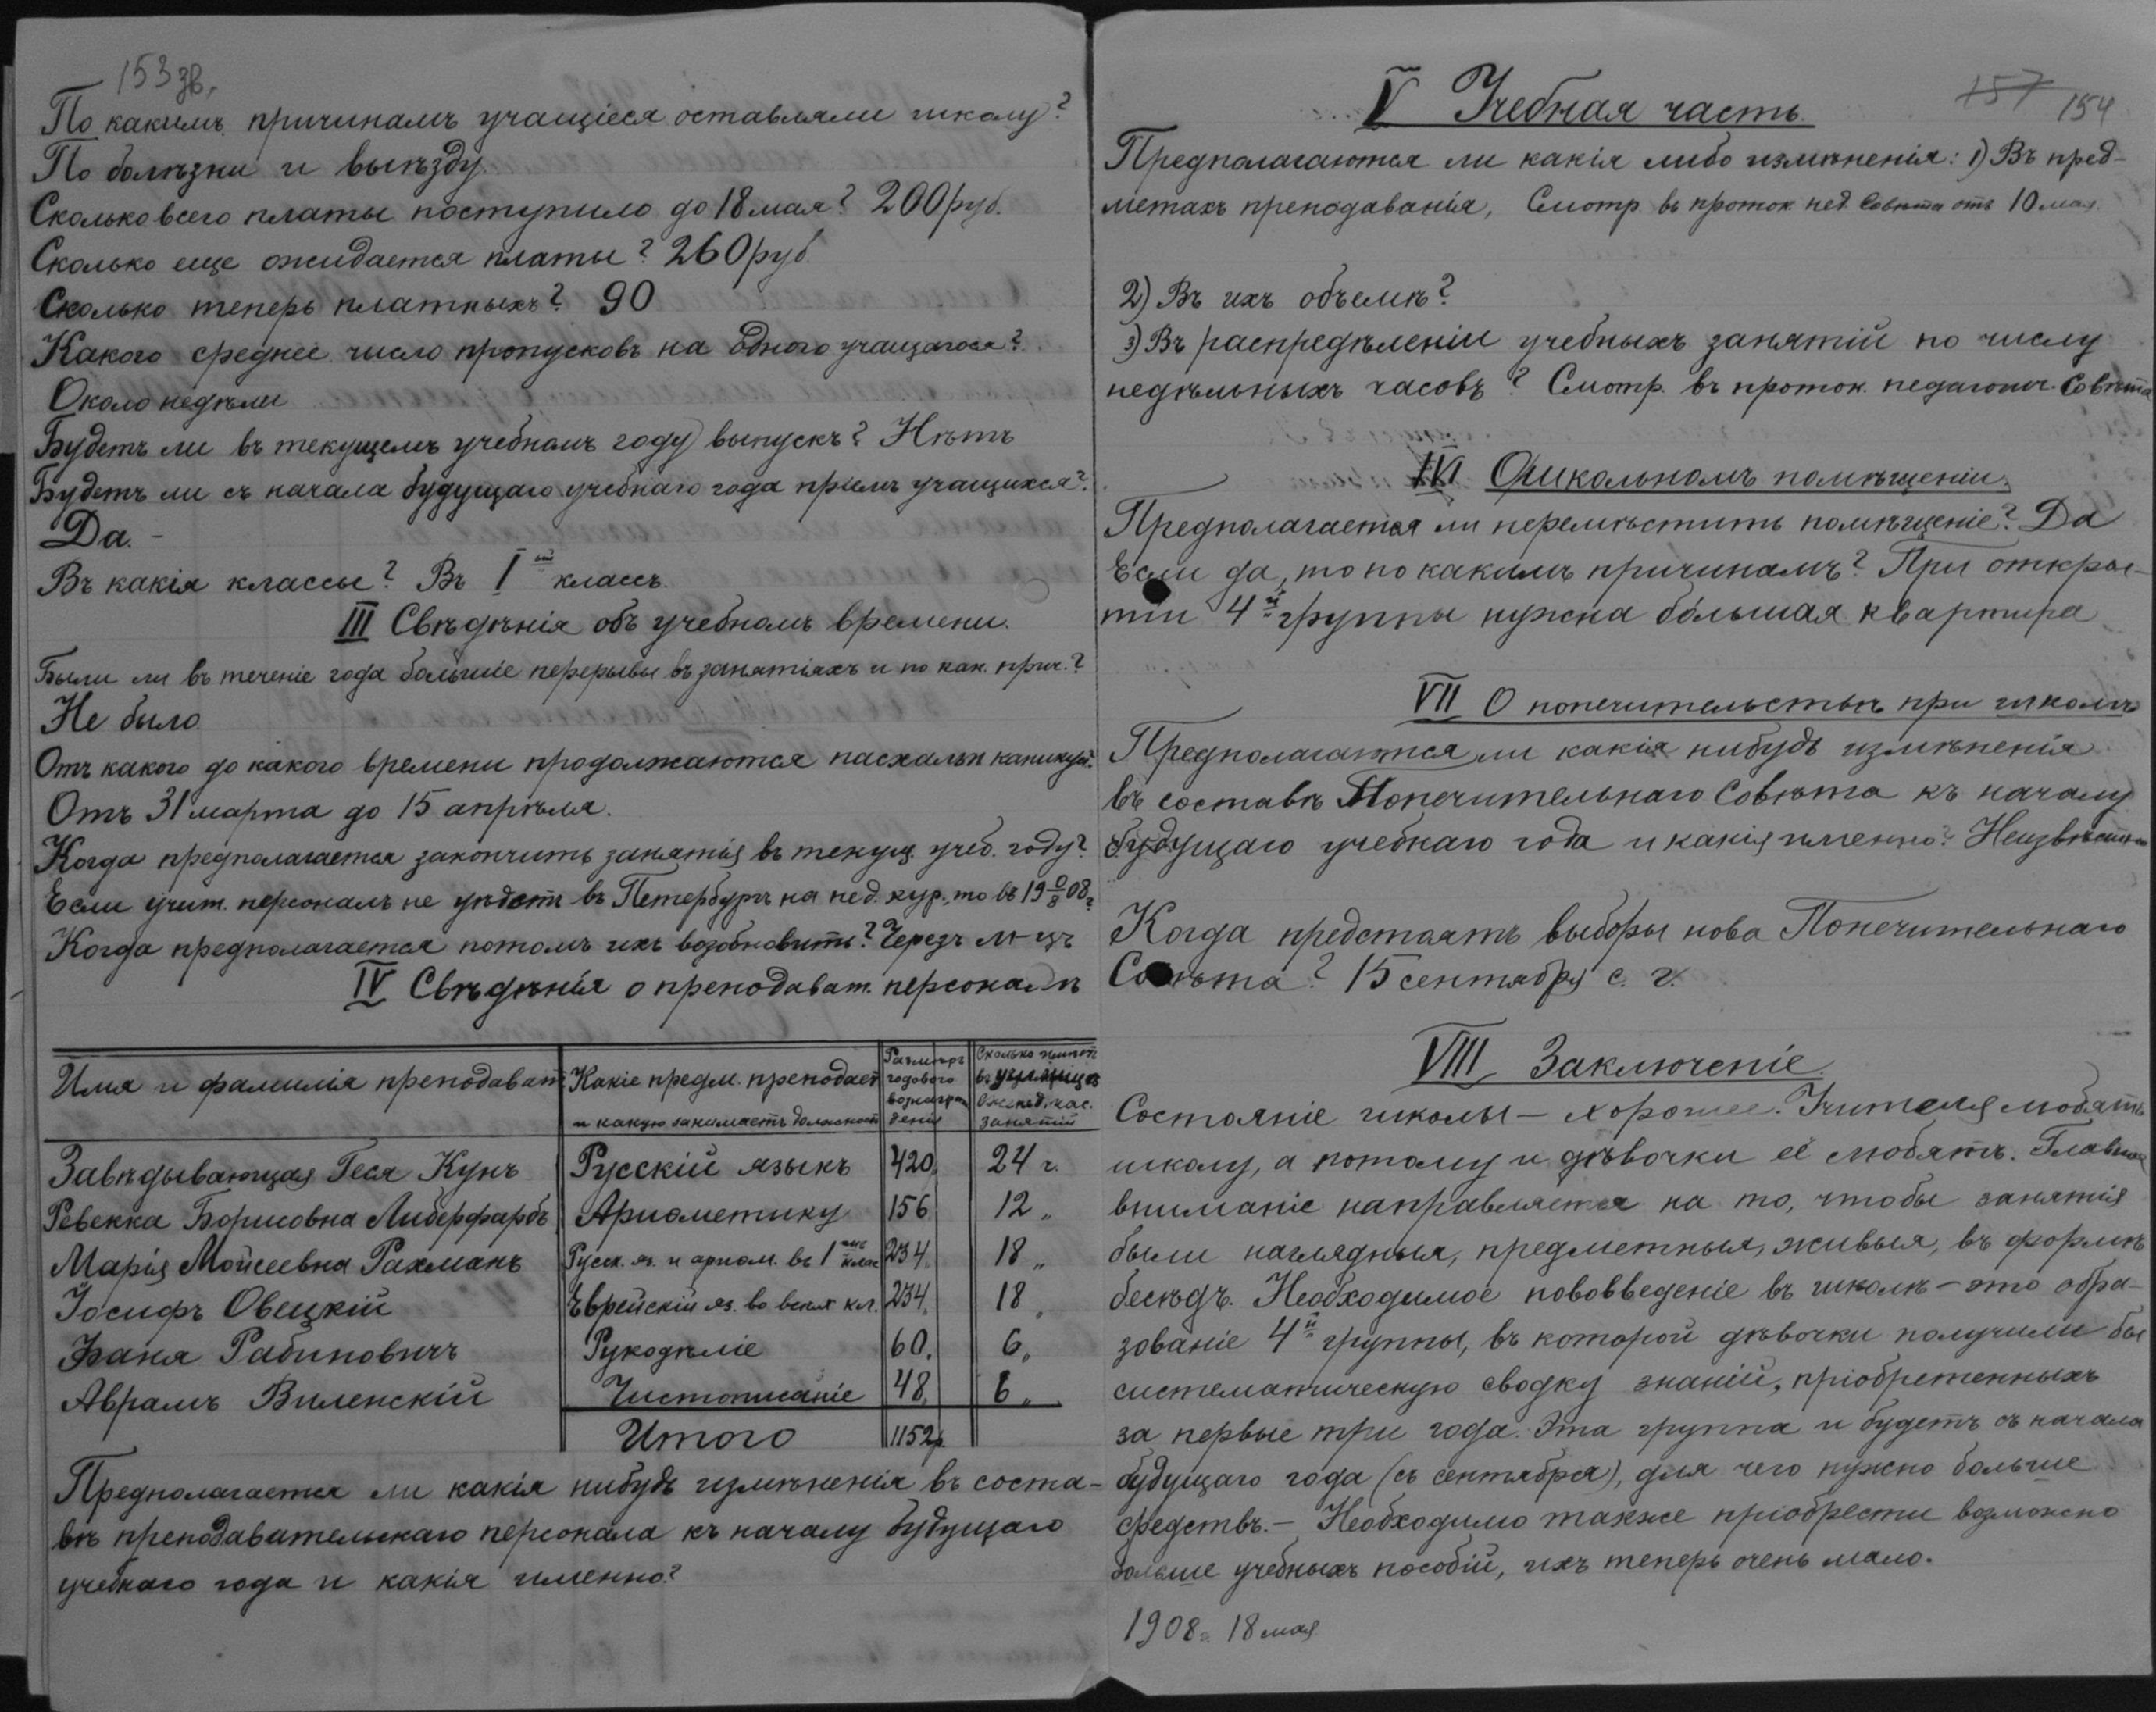 153 зв.
По какимъ причинамъ учащіеся оставляли школу?
По болѣзни и выѣзду.
Сколько всего платы поступило до 18 мая? 200 руб.
Сколько еще ожидается платы? 260 руб
Сколько теперь платныхъ? 90
Какого среднее число пропусковъ на одного учащагося?
Около недѣли
Будетъ ли въ текущемъ учебномъ году выпускъ? Нѣтъ
Будетъ ли съ начала будущаго учебнаго года пріемъ учащихся?
Да. -
Въ какія классы? Въ I ый классъ.
III Свѣдѣнія объ учебномъ времени.
Были ли въ теченіе года большіе перерывы въ занятіяхъ и по как. прич.?
Не было.
Отъ какого до какого времени продолжаются пасхальн каникул?
Отъ 31 марта до 15 апрѣля.
Когда предполагается закончить занятія въ текущ. учеб. году?
Если учит. персоналъ не уѣдетъ въ Петербургъ на пед. кур., то въ 19 0/8 08 г.
Когда предполагается потомъ ихъ возобновить? Черезъ м-цъ
IV Свѣдѣнія о преподават. персоналѣ
Имя и фамилія преподават Какіе предм. преподает и какую занимаетъ должност Размѣръ годового вознагражденія Сколько имѣетъ въ училищѣ еженед. час. занятій
Завѣдывающая Геся Кунъ Русскій языкъ 420. 24 ч.
Ревекка Борисовна Либерфарбъ Ариѳметику 156 12 „
Марія Мойсеевна Рахманъ Русск. яз. и ариѳм. въ 1 омъ клас 234. 18 „
Іосифъ Овецкій Еврейскій яз. во всѣхъ кл. 234. 18 „
Фаня Рабиновичъ Рукодѣліе 60. 6 „
Аврамъ Виленскій Чистописаніе 48. 6 „
Итого 1152 р.
Предполагается ли какія нибудь измѣненія въ соста-
вѣ преподавательскаго персонала къ началу будущаго
учебнаго года и какія именно?
V Учебная часть
157 154
Предполагаются ли какія либо измѣненія: 1) Въ пред-
метахъ преподаванія, Смотр. въ проток. пед. Совѣта отъ 10 мая.
2) Въ ихъ объемѣ?
3) Въ распредѣленіи учебныхъ занятій по числу
недѣльныхъ часовъ? Смотр. въ проток. педагогич. Совѣта
VI О школьномъ помѣщеніи.
Предполагается ли перемѣстить помѣщеніе? Да
Если да, то по какимъ причинамъ? При откры-
тіи 4 й группы нужна бо́льшая квартира
VII О попечительствѣ при школѣ
Предполагаются ли какія нибудь измѣненія
въ составѣ Попечительнаго Совѣта къ началу
будущаго учебнаго года и какія именно? Неизвѣстно
Когда предстоятъ выборы нова Попечительнаго
Совѣта? 15 сентября с. г.
VIII Заключеніе.
Состояніе школы – хорошее. Учителя любятъ
школу, а потому и дѣвочки её любятъ. Главное
вниманіе направляется на то, чтобы занятія
были наглядныя, предметныя, живыя, въ формѣ
бесѣдъ. Необходимое нововведеніе въ школѣ – это обра-
зованіе 4 й группы, въ которой дѣвочки получили бы
систематическую сводку знаній, пріобретенныхъ
за первые три года. Эта группа и будетъ съ начала
будущаго года (съ сентября), для чего нужно больше
средствъ. – Необходимо также пріобрести возможно
больше учебныхъ пособій, ихъ теперь очень мало.
1908 г. 18 мая